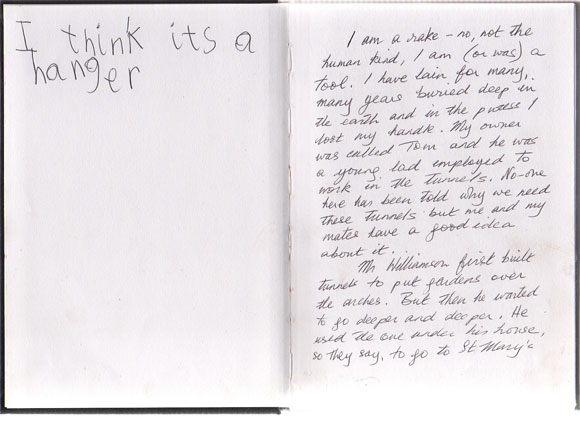 I think its a
hanger
I am a rake - no, not the
human kind, I am (or was) a
tool. I have lain for many,
many years buried deep in
the earth and in the process I
lost my handle. My owner
was called Tom and he was
a young lad employed to
work in the tunnels. No-one
here has been told why we need
these tunnels but me and my
mates have a good idea
about it.
Mr Williamson first built
tunnels to put gardens over
the arches. But then he wanted
to go deeper and deeper. He
used the one under his house,
so they say, to go to St Mary's